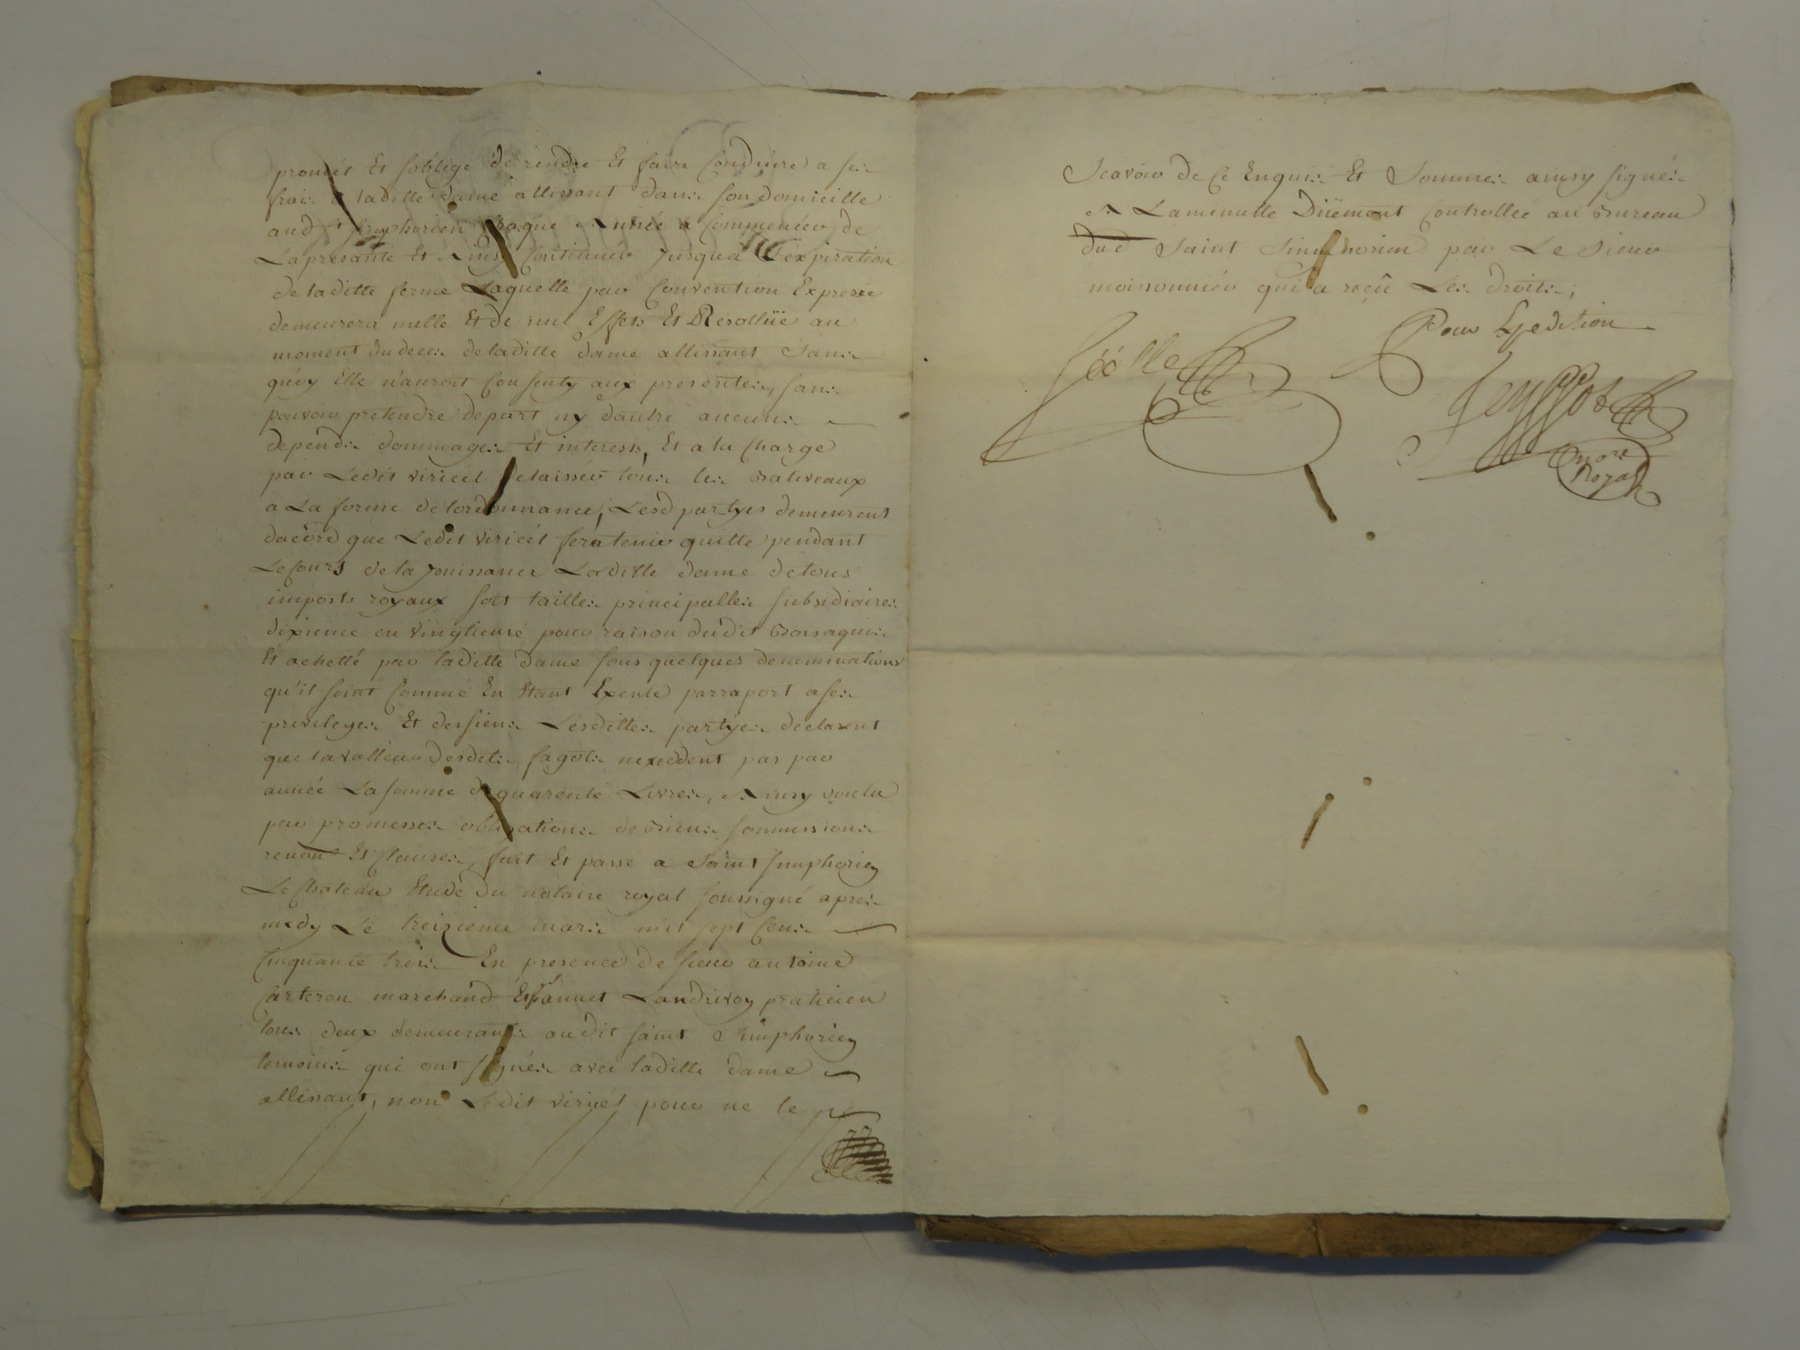 promet Et soblige de rendre Et faire Conduire a ses
frais a laditte dame allissant dans son domicille
aud St simphorien chaque Année a Commencer de
La presante Et Ainsy Continuer Jusqua Lexpiration
de laditte ferme Laquelle par Convention Expresse
demeurera nulle Et de nul Effets Et Resollüe au
moment du deces de laditte dame allissant Sans
quoy Elle n'auroit Consenty aux presentes, sans
pouvoir pretendre depart ny dautre aucuns
depends dommages Et interests, Et a la Charge
par Ledit viricel de laisser tous les Baliveaux
a La forme de lordonnance, Lesd partyes demeurent
dacord que Ledit viricel sera tenir quitte pendant
Le Cours de la Jouissance Laditte dame de tous
imposts royaux soit tailles principalles subsidiaires
dixieme ou vingtieme pour raison dudit Bois aquis
Et achetté par laditte dame sous quelques denominations
qu'il soint Comme En Etant Exente parraport a ses
privileges Et des siens Lesdittes partyes declarent
que la valleur desdits fagots nexcedent pas par
année La somme de quarente Livres, Ainsy voulu
par promesses obligations de biens soumissions
renon Et Clauses, fait Et passé a Saint simphorien
Le Chateau Etude du notaire royal soussigné apres
midy Le treizieme mars mil sept Cens
Cinquante trois En presence de sieur antoine
Carteron marchand Et Landrivon praticien
tous deux demeurants audit saint simphorien
temoins qui ont signés avec laditte dame
allissant, non Ledit viricel pour ne le
Scavoir de Ce Enquis Et Sommés ainsy signés
A La minutte Düement Controllée au Bureau
dud Saint Simphorien par Le Sieur
moissonnier qui a reçû Les droits;
Pour Expedition
nore
Royal